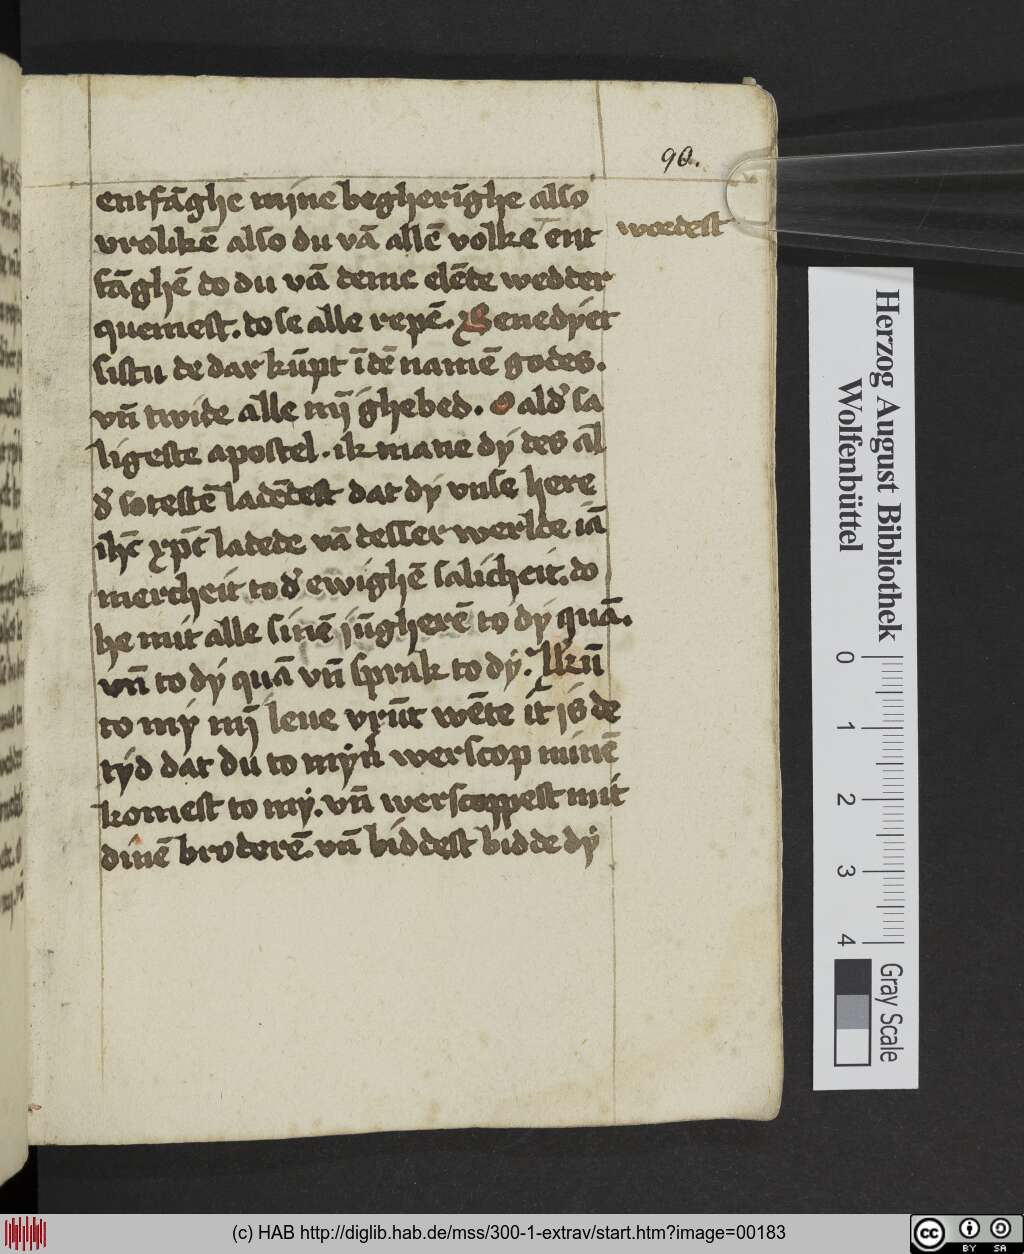 90.
entfāghē mine begherīghe also
vrolikē also du vā allē volke ent
wordest
fāghē do du vā deme elēde wedder
quemest. do se alle repē. Benedyet
sistu de dar kūpt ī dē namē godes.
vn̄ twide alle mӯ ghebed. O ald' sa
ligeste apostel. ik mane dy des al
d' sotestē ladēdest dat dy vnse here
ihc̄ xp̄c ladede vā desser werlde iā
mercheit to d' ewighē salicheit. do
he mit alle sinē jūgherē to dy quā.
vn̄ to dy quā vn̄ sprak to dy. Kū
to my mӯ leue vrūt wēte it is de
tyd dat du to myn̄ werscop minē
komest to my. vn̄ werscoppest mit
dinē broderē. vn̄ biddest bidde dy
Herzog August Bibliothek
Wolfenbüttel
0 1 2 3 4
Gray Scale
(c) HAB http://diglib.hab.de/mss/300-1-extrav/start.htm?image=00183
cc BY SA